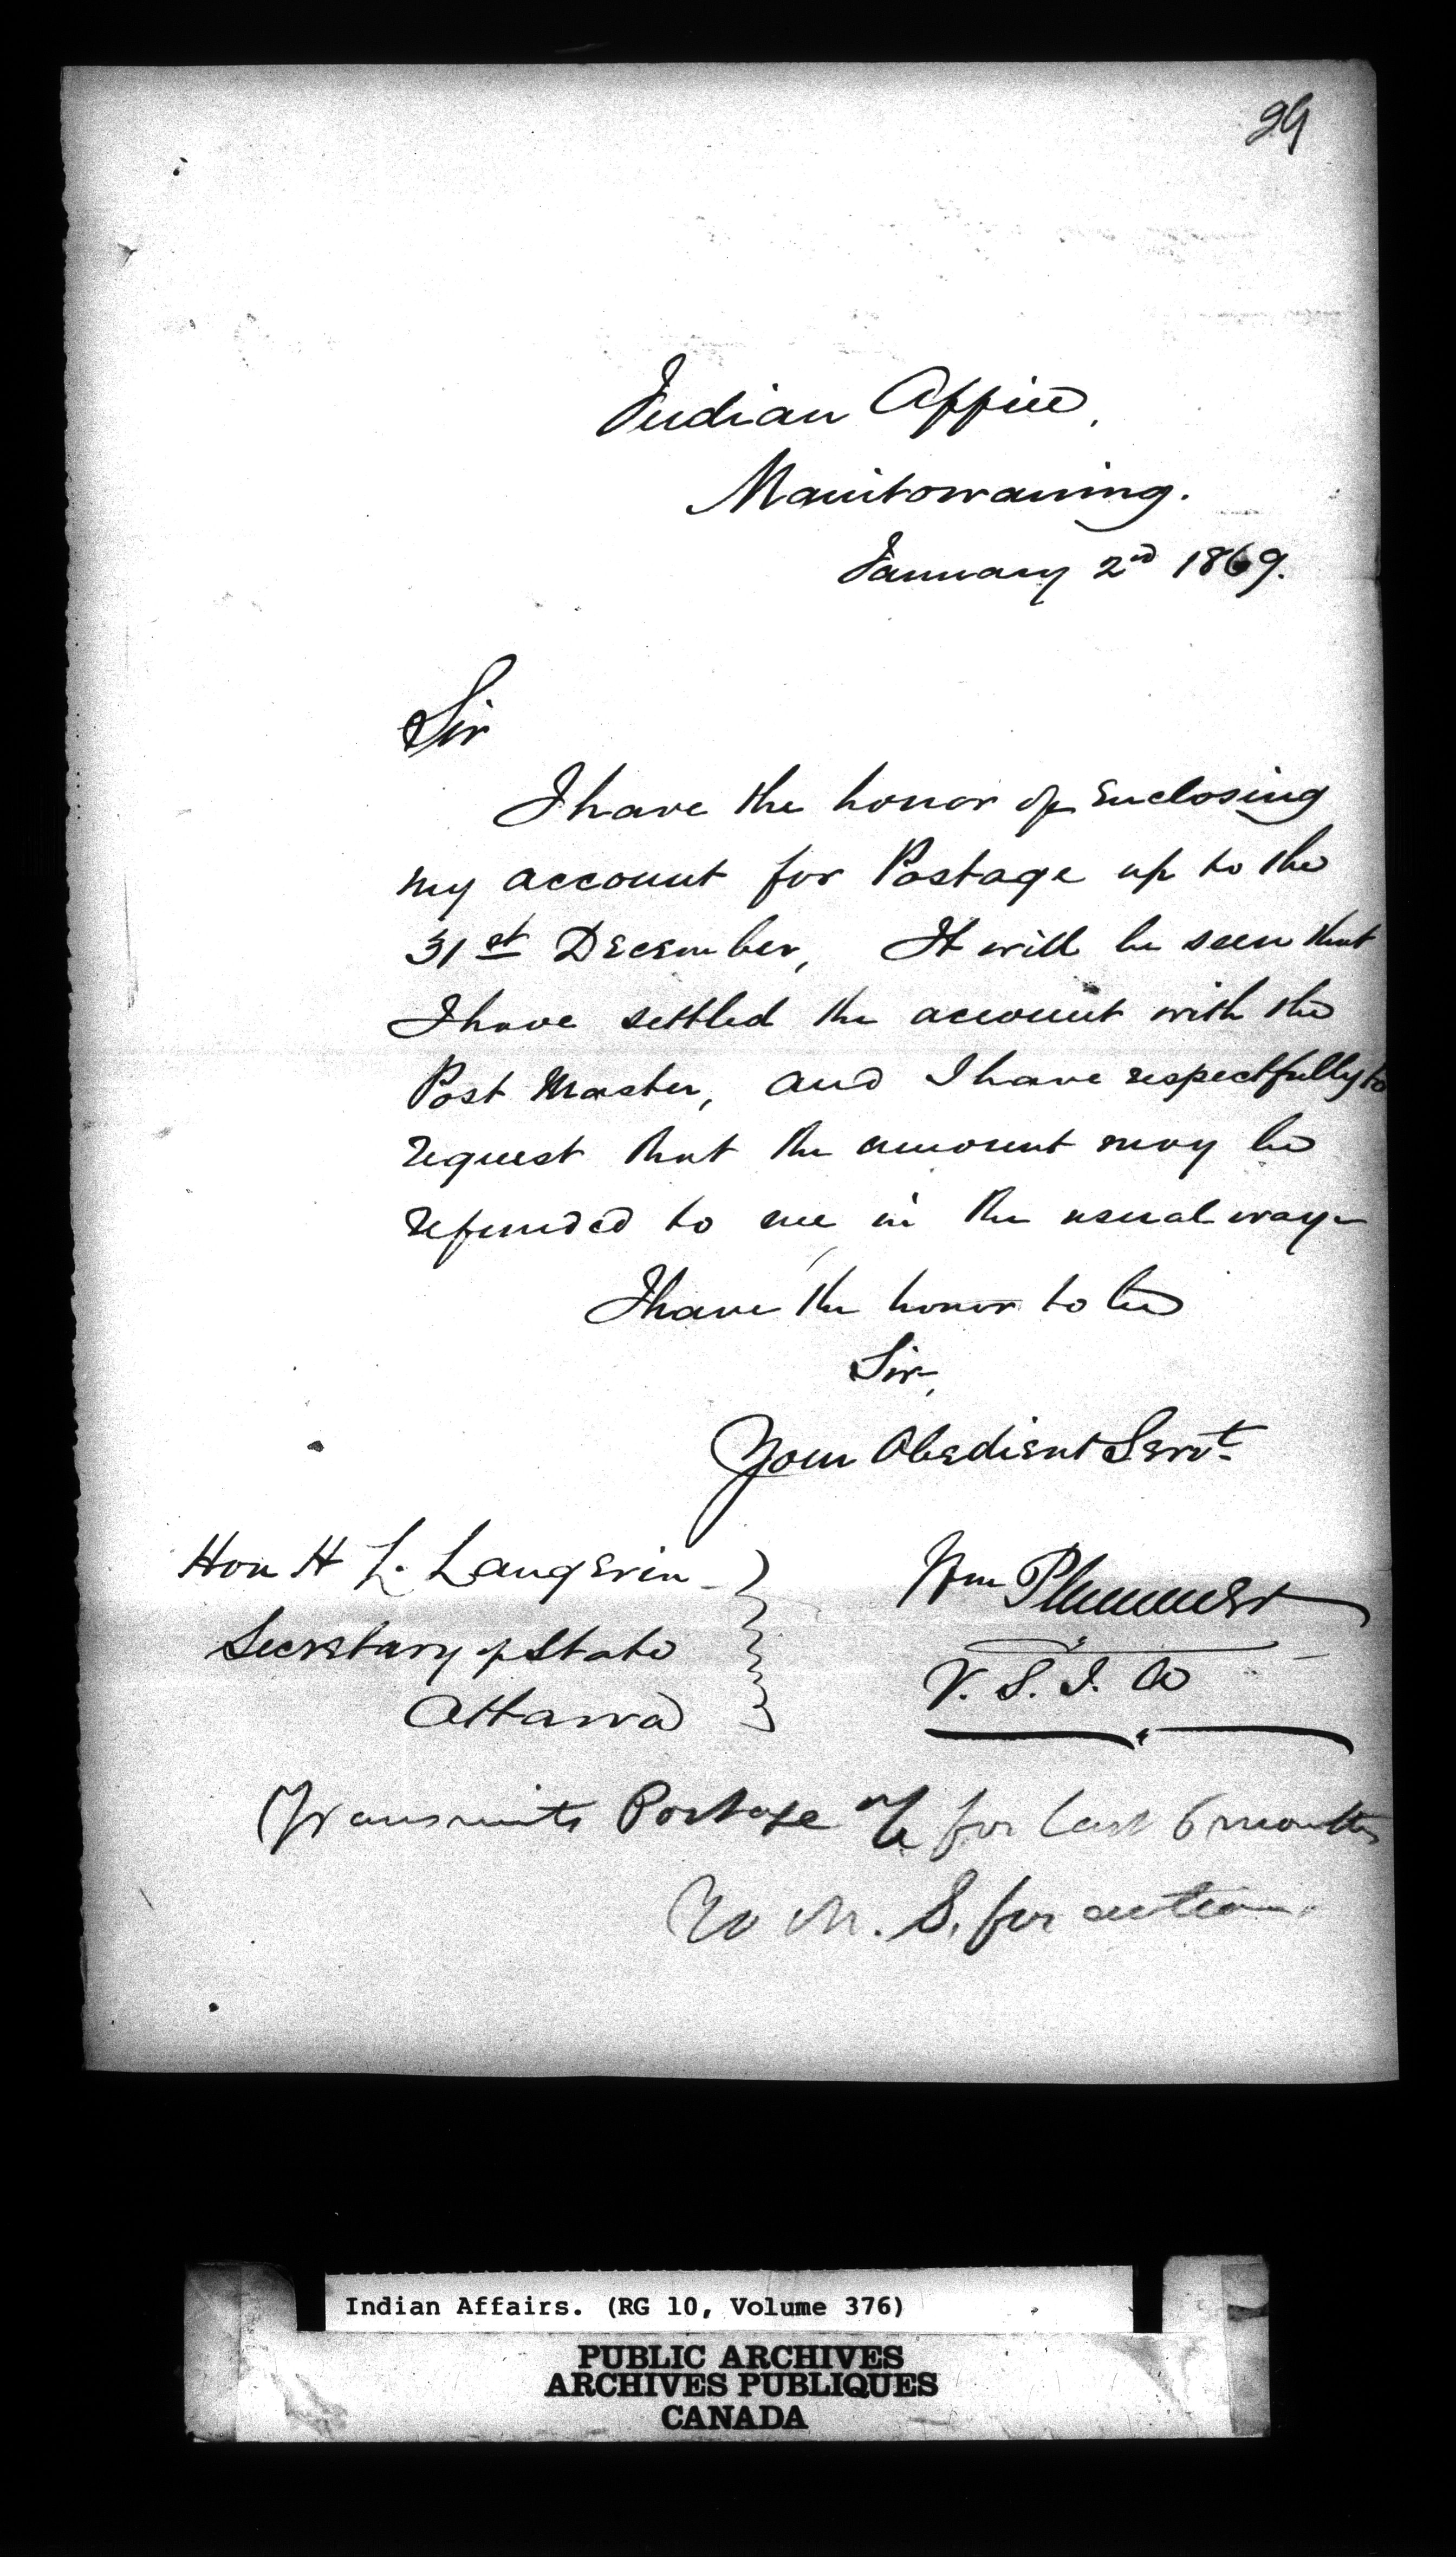 29
Indian Office,
Manitowaning.
January 2nd 1869.
Sir
I have the honor of Enclosing
my account for Postage up to the
31st December, It will be seen that
I have settled the account with the
Post Master, and I have respectfully to
request that the amount may be
refunded to me in the usual way
I have the honor to be
Sir,
Your Obedient Servt
Hon H L. Langevin
Wm Plummer
Secretary of State
V. S. I. A
Ottawa
Transmits Postage a/c for last 6 months
To M. S, for action.
Indian Affairs. (RG 10, Volume 376)
PUBLIC ARCHIVES
ARCHIVES PUBLIQUES
CANADA